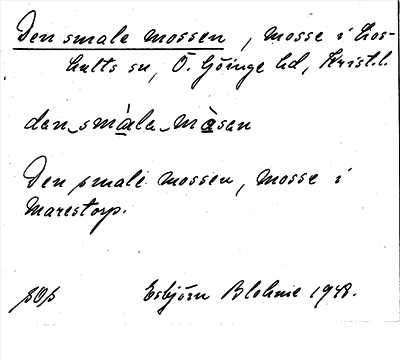 Den smale mossen, mosse i Los-
hults sn, Ö. Göinge hd, Krist.l.
dan småla måsan
Den smale mossen, mosse i
Marestorp.
Esbjörn Blohmé 1948.